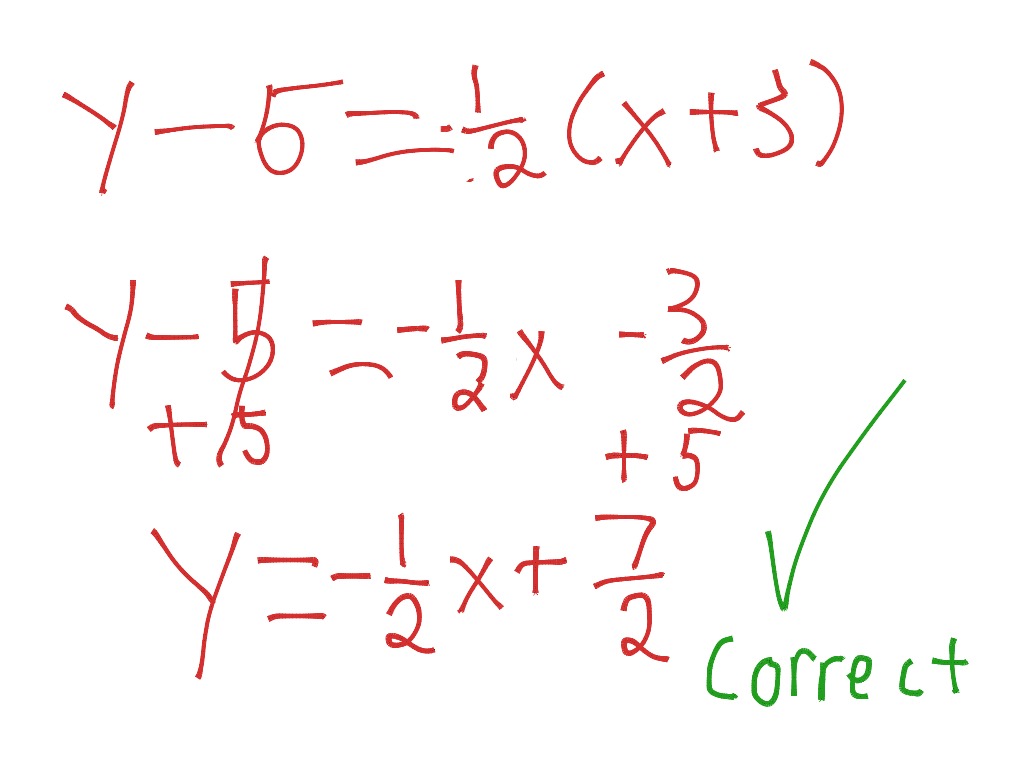 Y - 5 = -1/2 (x + 3)
Y - 5 = -1/2 x - 3/2
+ 5 + 5
Y = -1/2 x + 7/2
Correct